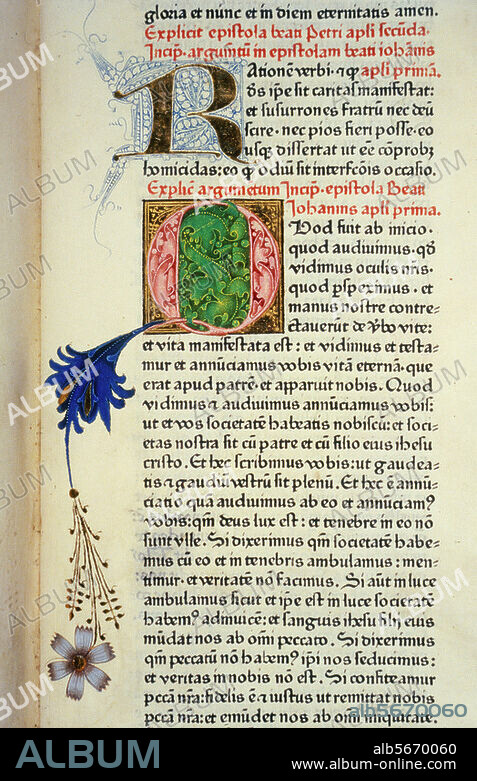 gloria et nunc et in diem eternitatis amen.
Explicit epistola beati Petri apli secūda.
Incip. argumētū in epistolam beati iohānis
Rationem verbi. ꝙꝙ apli primā.
ꝙ ds̄ ip̄e sit caritas manifestat:
et susurrones fratrū nec deū
scire. nec pios fieri posse. eo
usꝙ dissertat ut eē cōprobꝫ
homicidas: eo ꝙ odiū sit interfcōis occasio.
Explic̄ argumētum Incip. epistola Beati
Iohannis apli prima.
Quod fuit ab inicio.
quod audiuimus. qd̄
vidimus oculis nr̄is.
quod ꝑspeximus. et
manus nostre contre-
ctauerūt de v̓bo vite:
et vita manifestata est: et vidimus et testa-
mur et annūciamus vobis vitā eternā. que
erat apud patrē. et apparuit nobis. Quod
vidimus et audiuimus annūciamus vobis:
ut et vos societatē habeatis nobiscū: et soci-
etas nostra sit cū patre et cū filio eius ihesu
cristo. Et hec scribimus vobis: ut gaudea-
tis et gaudiū vestrū sit plenū. Et hec ē annū-
ciatio quā audiuimus ab eo et annūciamꝰ
vobis: qm̄ deus lux est: et tenebre in eo nō
sunt vlle. Si dixerimus qm̄ societatē habe-
mus cū eo et in tenebris ambulamus: men-
timur. et veritatē nō facimus. Si aūt in luce
ambulamus sicut et ip̄e est in luce societatē
habemꝰ adinuicē: et sanguis ihesu filij eius
mūdat nos ab om̄i peccato. Si dixerimus
qm̄ peccatū nō habemꝰ ip̄i nos seducimus:
et veritas in nobis nō est. Si confiteamur
pcc̄ā nr̄a: fidelis ē et iustus ut remittat nobis
pcc̄ā nr̄a: et emūdet nos ab om̄i iniquitate.
ALBUM
alb5670060
ALBUM
alb5670060
www.album-online.com